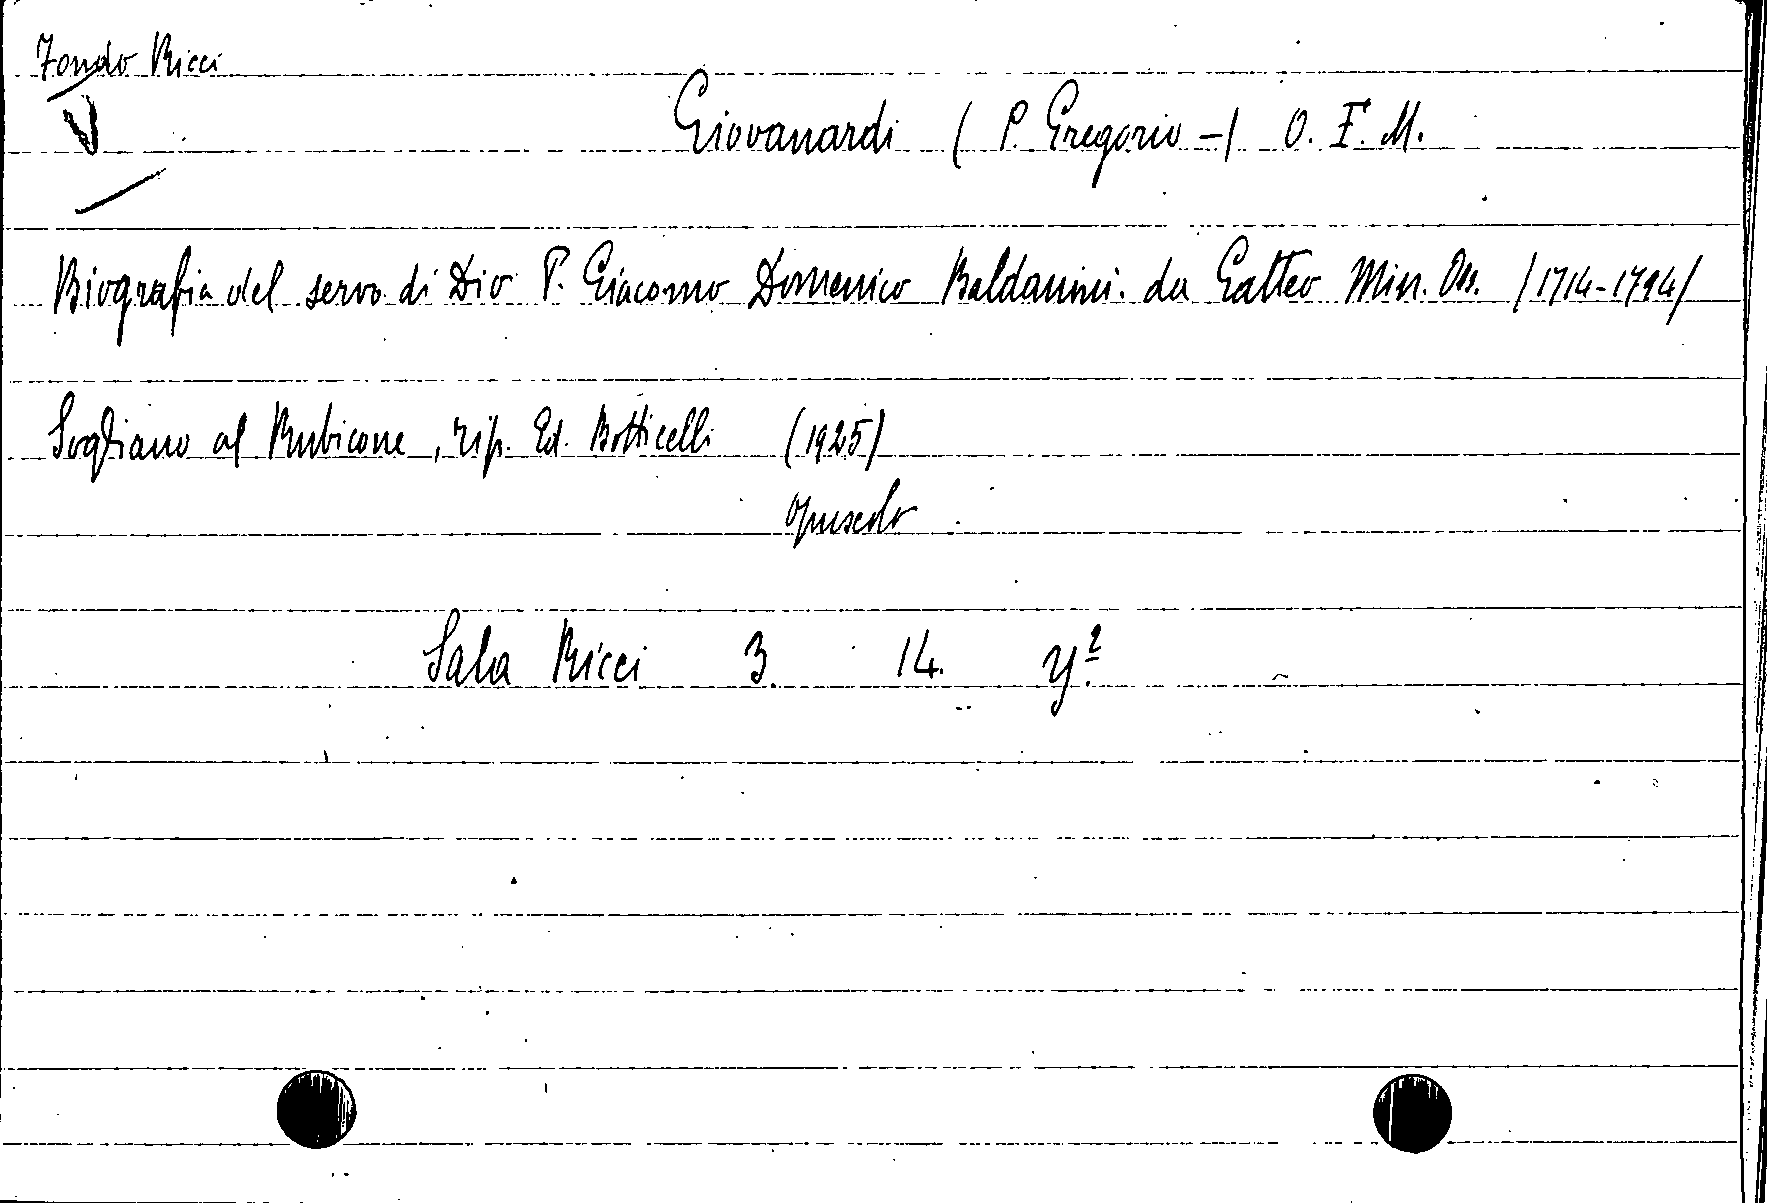 Fondo Ricci
V
Giovanardi (P. Gregorio -) O. F. M.
Biografia del servo di Dio P. Giacomo Domenico Baldannini da Gatteo Min. Oss. (1714-1794)
Sogliano al Rubicone, tip. Ed. Botticelli (1925)
opuscolo
Sala Ricci 3. 14. y.²